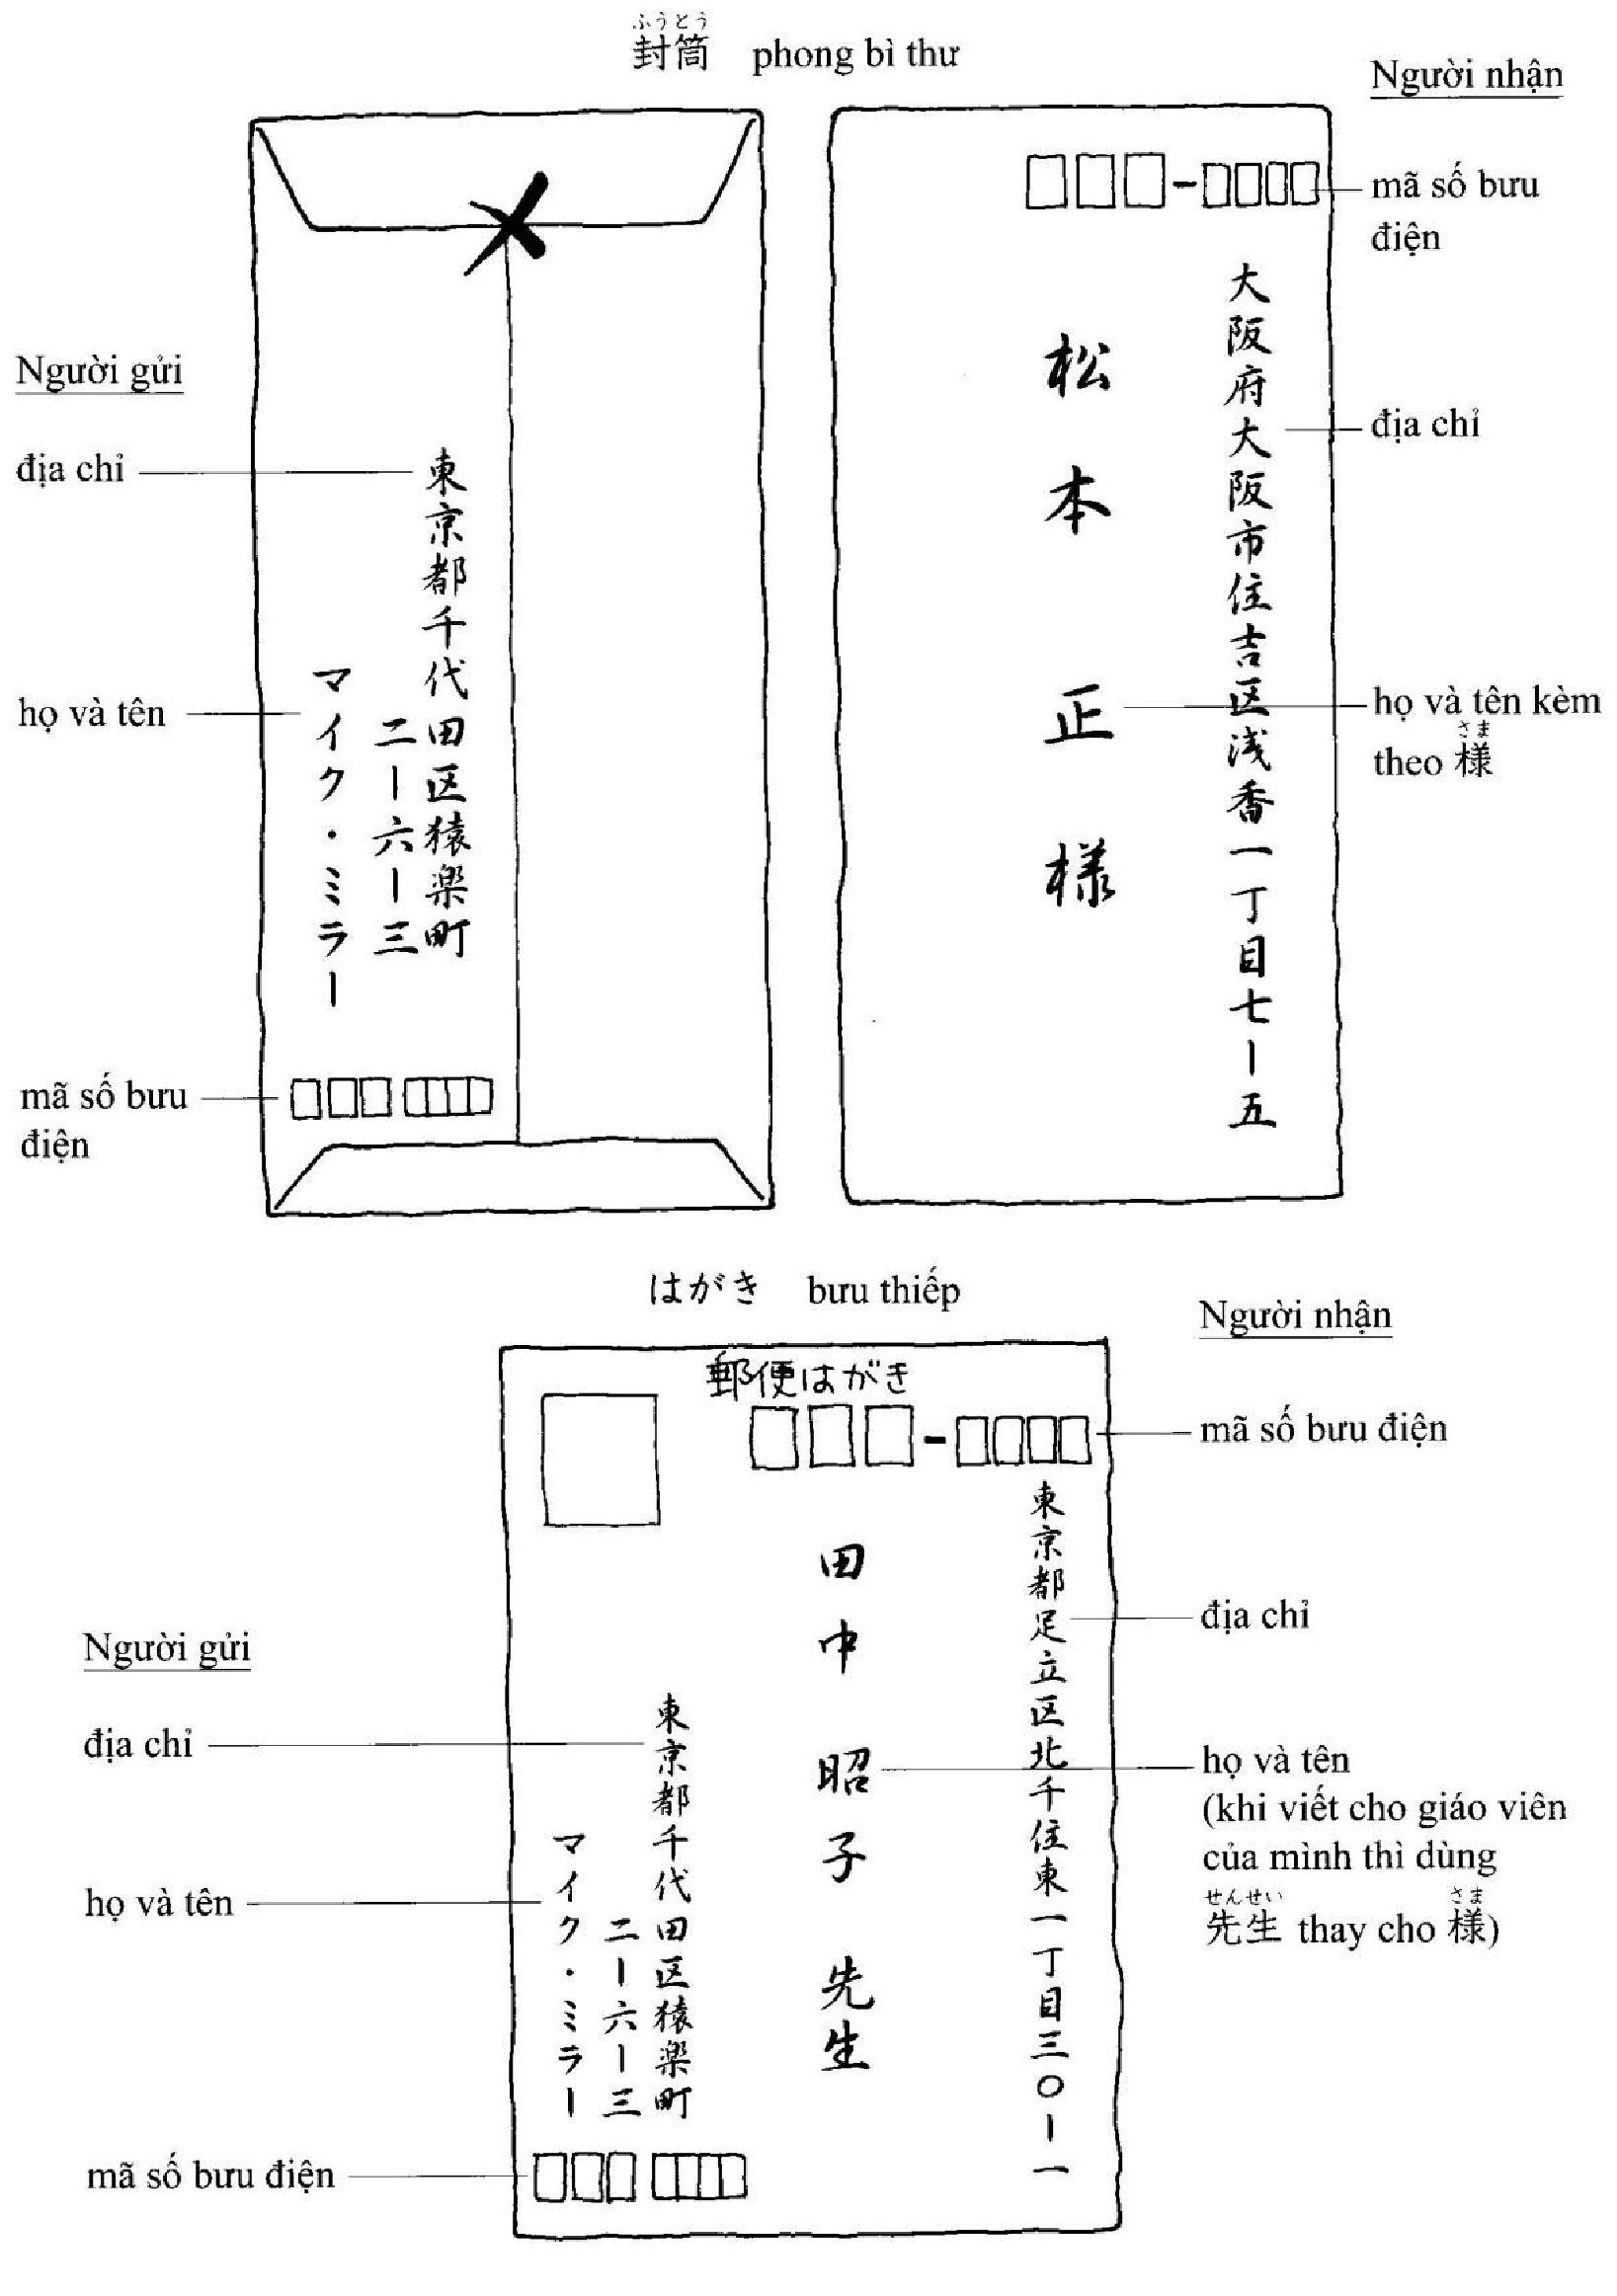 ふうとう
封筒 phong bì thư
Người nhận
mã số bưu
điện
大阪府大阪市住吉区浅香一丁目七ー五
địa chỉ
松本 正 様
họ và tên kèm
さま
theo 様
Người gửi
địa chỉ
東京都千代田区猿楽町
二ー六ー三
họ và tên
マイク・ミラー
mã số bưu
điện
はがき bưu thiếp
Người nhận
郵便はがき
mã số bưu điện
東京都足立区北千住東一丁目三〇ー一
địa chỉ
田中 昭子 先生
họ và tên
(khi viết cho giáo viên
của mình thì dùng
せんせい さま
先生 thay cho 様)
Người gửi
địa chỉ
東京都千代田区猿楽町
二ー六ー三
họ và tên
マイク・ミラー
mã số bưu điện